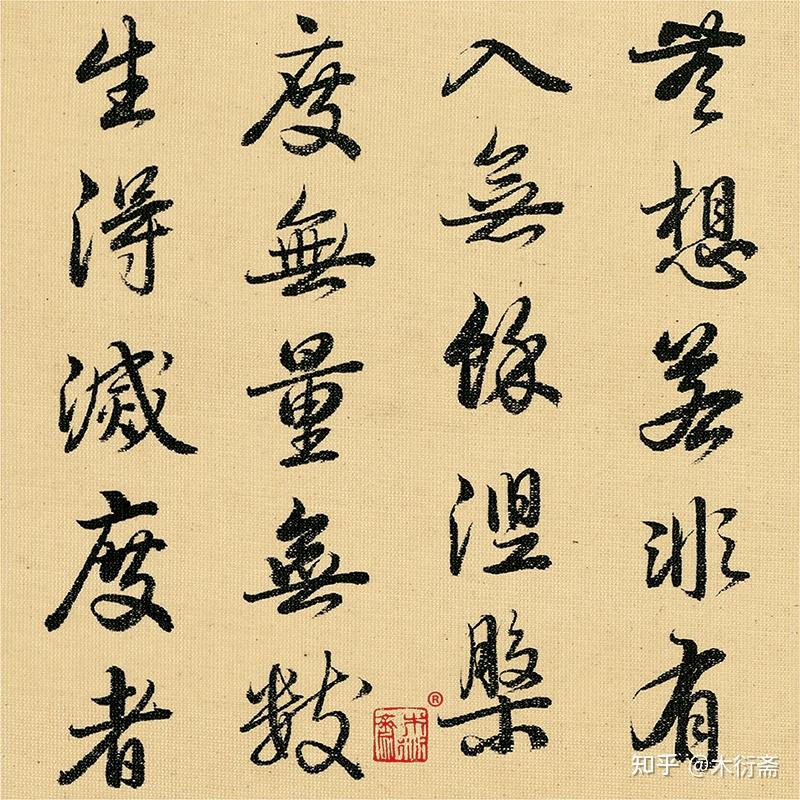 无想若非有
入無餘涅槃
度無量無數
生得滅度者
®
知乎 @木衍斋